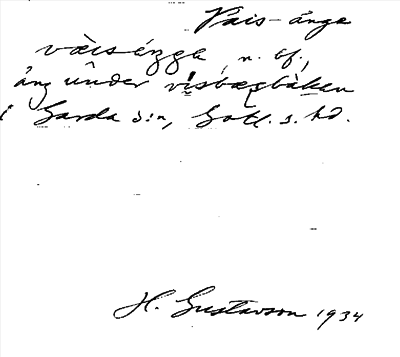 Vais-änge
vàisǽŋgɛ, n. bf.,
äng under visbægbàkan
i Garda s:n, Gotl. s. hd.
H. Gustavson 1934